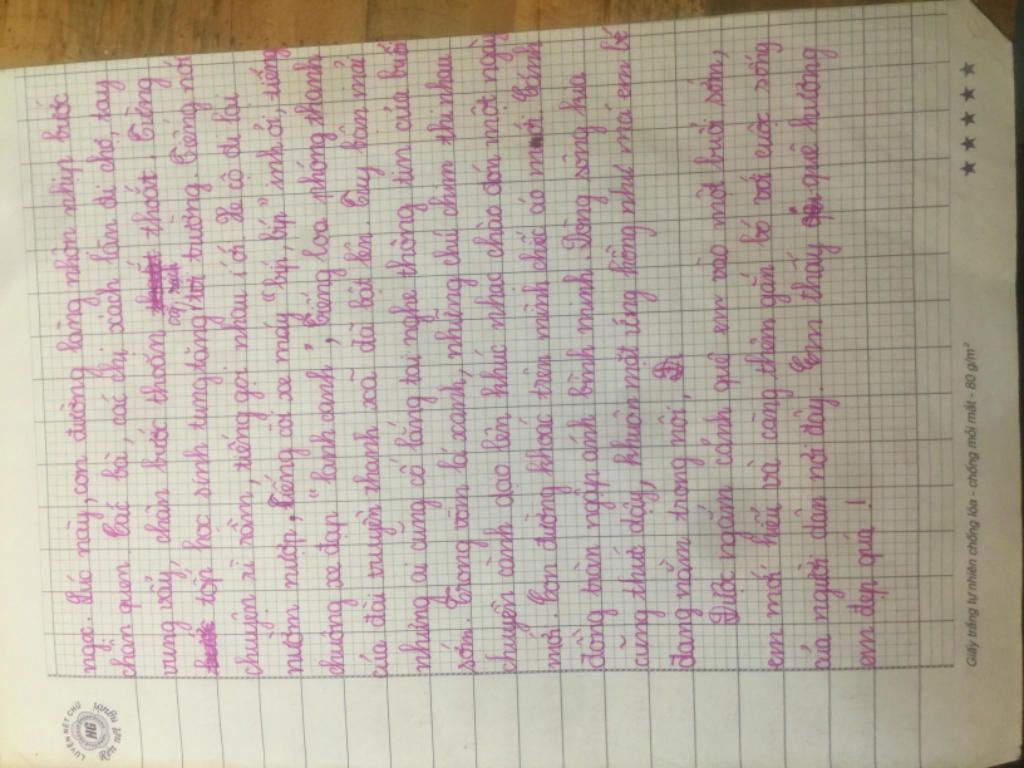 ngọc. Lúc này, con đường làng nhộn nhịp bước
chân quen. Các bà, các chị xách làn đi chợ, tay
vung vẩy, chân bước thoăn thoắt. Tiếng
cắp sách
tốp học sinh tung tăng tới trường. Tiếng nói
chuyện rì rầm, tiếng gọi nhau í ới. Xe cộ đi lại
nườm mượp, tiếng còi xe máy "bíp, bíp" inh ỏi, tiếng
chuông xe đạp "lanh canh", tiếng loa phóng thanh
của đài truyền thanh xã đã bật lên. Tuy bận mải
nhưng ai cũng cố lắng tai nghe thông tin của buổi
sớm. Trong vòm lá xanh, những chú chim thi nhau
chuyền cành dạo lên khúc nhạc chào đón một ngày
mới. Con đường khoác trên mình chiếc áo mới. Cánh
đồng tràn ngập ánh bình minh. Dòng sông kia
cũng thức dậy, khuôn mặt ửng hồng như má em bé
đang nằm trong nôi.
Được ngắm cảnh quê em vào một buổi sớm,
em mới hiểu và càng thêm gắn bó với cuộc sống
của người dân nơi đây. Em thấy quê hương
em đẹp quá!
LUYỆN NÉT CHỮ
HG
Rèn nết người
Giấy trắng tự nhiên chống lóa - chống mỏi mắt - 80 g/m²